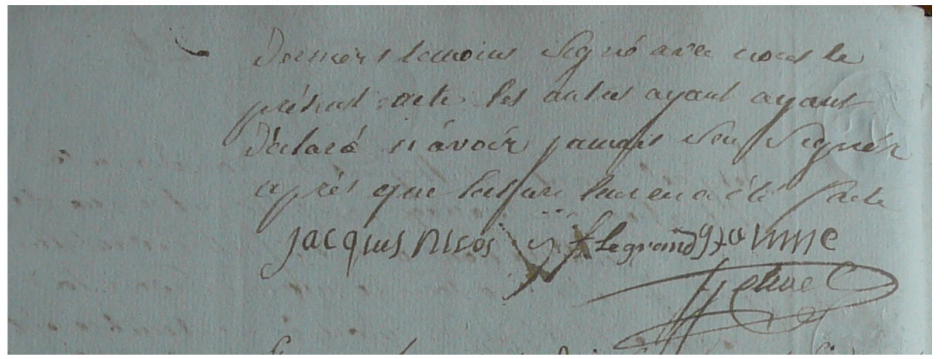 Derniers temoins signé avec nous le
présent acte les autres ayant ayant
déclaré n'avoir jamais seu signer
après que lecture leur en a été faite
jacques nicos f Legrand